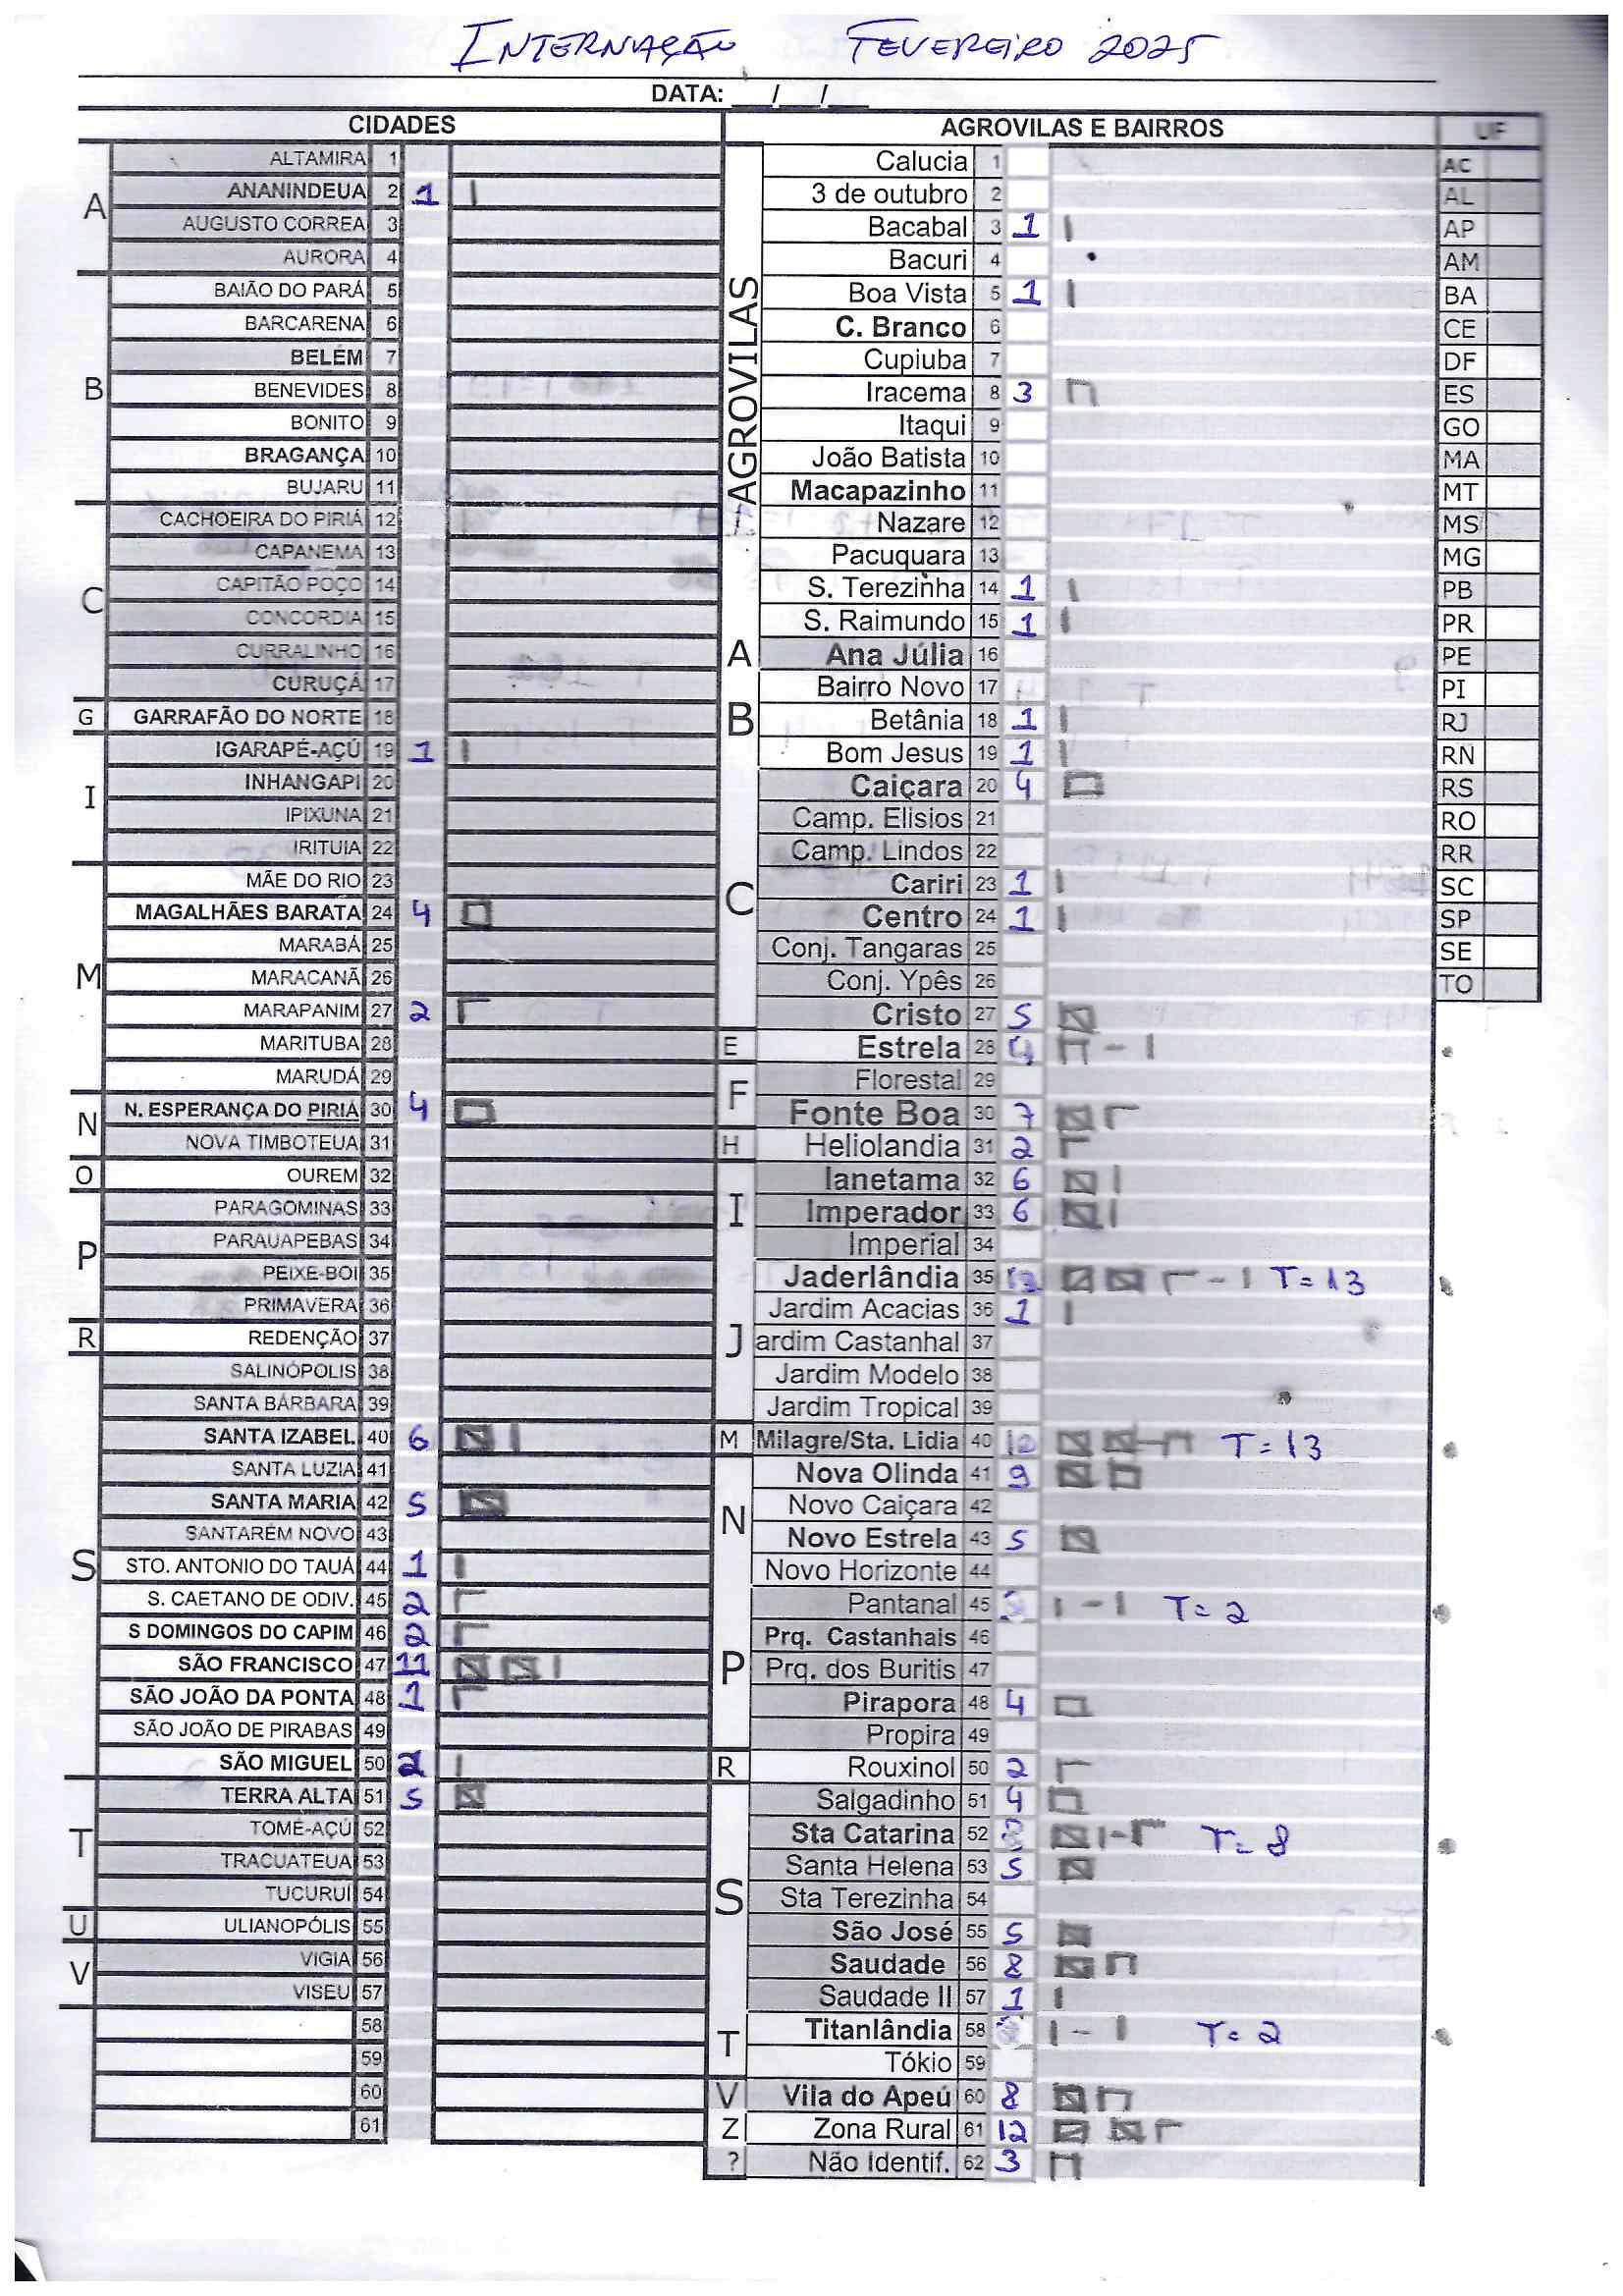 INTERNAÇÃO FEVEREIRO 2025
DATA: __/__/__
CIDADES
A
ALTAMIRA 1
ANANINDEUA 2 1
AUGUSTO CORREA 3
AURORA 4
B
BAIÃO DO PARÁ 5
BARCARENA 6
BELÉM 7
BENEVIDES 8
BONITO 9
BRAGANÇA 10
BUJARU 11
C
CACHOEIRA DO PIRIÁ 12
CAPANEMA 13
CAPITÃO POÇO 14
CONCORDIA 15
CURRALINHO 16
CURUÇÁ 17
G
GARRAFÃO DO NORTE 18
I
IGARAPÉ-AÇÚ 19 1
INHANGAPI 20
IPIXUNA 21
IRITUIA 22
M
MÃE DO RIO 23
MAGALHÃES BARATA 24 4
MARABÁ 25
MARACANÃ 26
MARAPANIM 27 2
MARITUBA 28
MARUDÁ 29
N
N. ESPERANÇA DO PIRIÁ 30 4
NOVA TIMBOTEUA 31
O
OUREM 32
P
PARAGOMINAS 33
PARAUAPEBAS 34
PEIXE-BOI 35
PRIMAVERA 36
R
REDENÇÃO 37
S
SALINÓPOLIS 38
SANTA BÁRBARA 39
SANTA IZABEL 40 6
SANTA LUZIA 41
SANTA MARIA 42 5
SANTARÉM NOVO 43
STO. ANTONIO DO TAUÁ 44 1
S. CAETANO DE ODIV. 45 2
S DOMINGOS DO CAPIM 46 2
SÃO FRANCISCO 47 11
SÃO JOÃO DA PONTA 48 1
SÃO JOÃO DE PIRABAS 49
SÃO MIGUEL 50 2
T
TERRA ALTA 51 5
TOMÉ-AÇÚ 52
TRACUATEUA 53
TUCURUÍ 54
U
ULIANOPÓLIS 55
V
VIGIA 56
VISEU 57
58
59
60
61
AGROVILAS E BAIRROS
AGROVILAS
Calucia 1
3 de outubro 2
Bacabal 3 1
Bacuri 4
Boa Vista 5 1
C. Branco 6
Cupiuba 7
Iracema 8 3
Itaqui 9
João Batista 10
Macapazinho 11
Nazare 12
Pacuquara 13
S. Terezinha 14 1
S. Raimundo 15 1
A
Ana Júlia 16
B
Bairro Novo 17
Betânia 18 1
Bom Jesus 19 1
C
Caiçara 20 4
Camp. Elisios 21
Camp. Lindos 22
Cariri 23 1
Centro 24 1
Conj. Tangaras 25
Conj. Ypês 26
Cristo 27 5
E
Estrela 28 4
F
Florestal 29
Fonte Boa 30 7
H
Heliolandia 31 2
I
Ianetama 32 6
Imperador 33 6
Imperial 34
J
Jaderlândia 35 T=13
Jardim Acacias 36 1
ardim Castanhal 37
Jardim Modelo 38
Jardim Tropical 39
M
Milagre/Sta. Lidia 40 T=13
N
Nova Olinda 41 9
Novo Caiçara 42
Novo Estrela 43 5
Novo Horizonte 44
P
Pantanal 45 T=2
Prq. Castanhais 46
Prq. dos Buritis 47
Pirapora 48 4
Propira 49
R
Rouxinol 50 2
S
Salgadinho 51 4
Sta Catarina 52 T=8
Santa Helena 53 5
Sta Terezinha 54
São José 55 5
Saudade 56 8
Saudade II 57 1
T
Titanlândia 58 T=2
Tókio 59
V
Vila do Apeú 60 8
Z
Zona Rural 61 12
?
Não Identif. 62 3
UF
AC
AL
AP
AM
BA
CE
DF
ES
GO
MA
MT
MS
MG
PB
PR
PE
PI
RJ
RN
RS
RO
RR
SC
SP
SE
TO